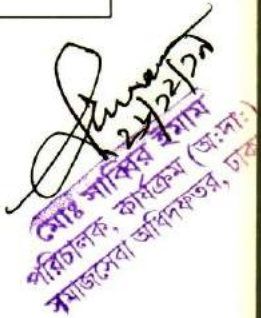 ২৯/১২/১৯
মোঃ সাব্বির ইমাম
পরিচালক, কার্যক্রম (অ:দা:)
সমাজসেবা অধিদফতর, ঢাকা